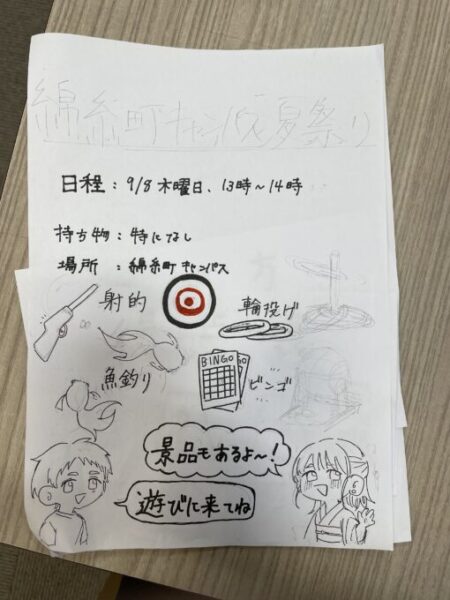 綿糸町キャンパス夏祭り
日程：9/8 木曜日、13時～14時
持ち物：特になし
場所：綿糸町キャンパス
射的
輪投げ
魚釣り
BINGO
ビンゴ
景品もあるよ～！
遊びに来てね